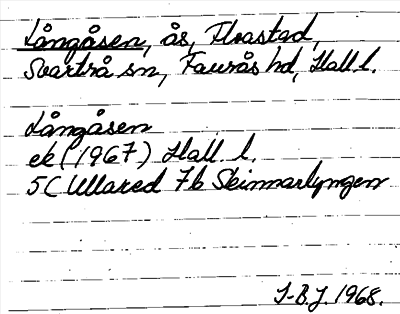 Långåsen, ås, Floastad,
Svartrå sn, Faurås hd, Hall. l.
Långåsen
ek (1967) Hall. l.
5C Ullared 7b Skinnarlyngen
I-B.J. 1968.